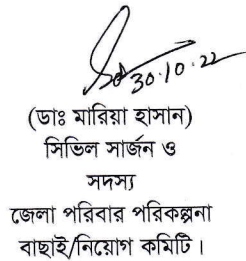 30.10.22
(ডাঃ মারিয়া হাসান)
সিভিল সার্জন ও
সদস্য
জেলা পরিবার পরিকল্পনা
বাছাই/নিয়োগ কমিটি।